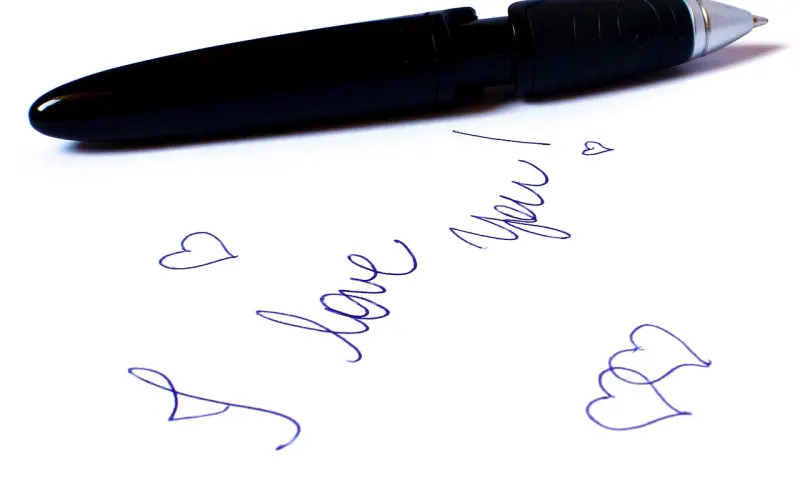 I love you!